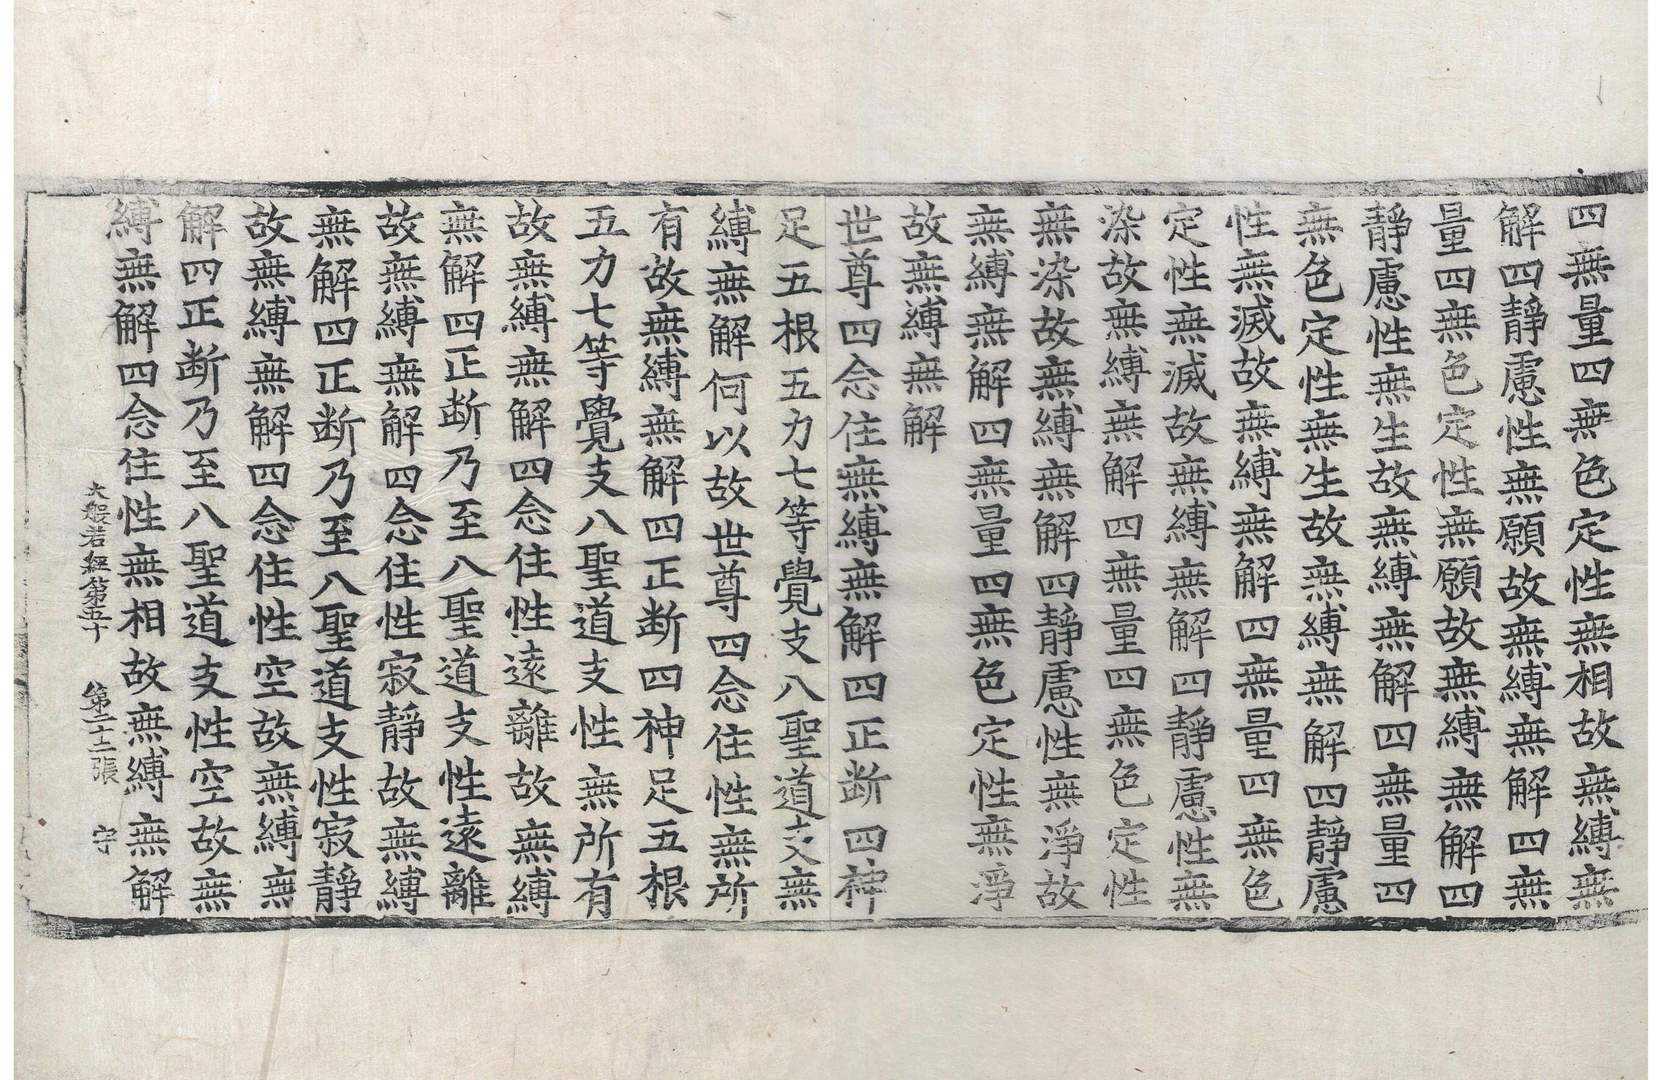 四無量四無色定性無相故無縛無
解四靜慮性無願故無縛無解四無
量四無色定性無願故無縛無解四
靜慮性無生故無縛無解四無量四
無色定性無生故無縛無解四靜慮
性無滅故無縛無解四無量四無色
定性無滅故無縛無解四靜慮性無
染故無縛無解四無量四無色定性
無染故無縛無解四靜慮性無淨故
無縛無解四無量四無色定性無淨
故無縛無解
世尊四念住無縛無解四正断四神
足五根五力七等覺支八聖道支無
縛無解何以故世尊四念住性無所
有故無縛無解四正断四神足五根
五力七等覺支八聖道支性無所有
故無縛無解四念住性遠離故無縛
無解四正断乃至八聖道支性遠離
故無縛無解四念住性寂靜故無縛
無解四正断乃至八聖道支性寂靜
故無縛無解四念住性空故無縛無
解四正断乃至八聖道支性空故無
縛無解四念住性無相故無縛無解
大般若經第五十 第二十二張 宇